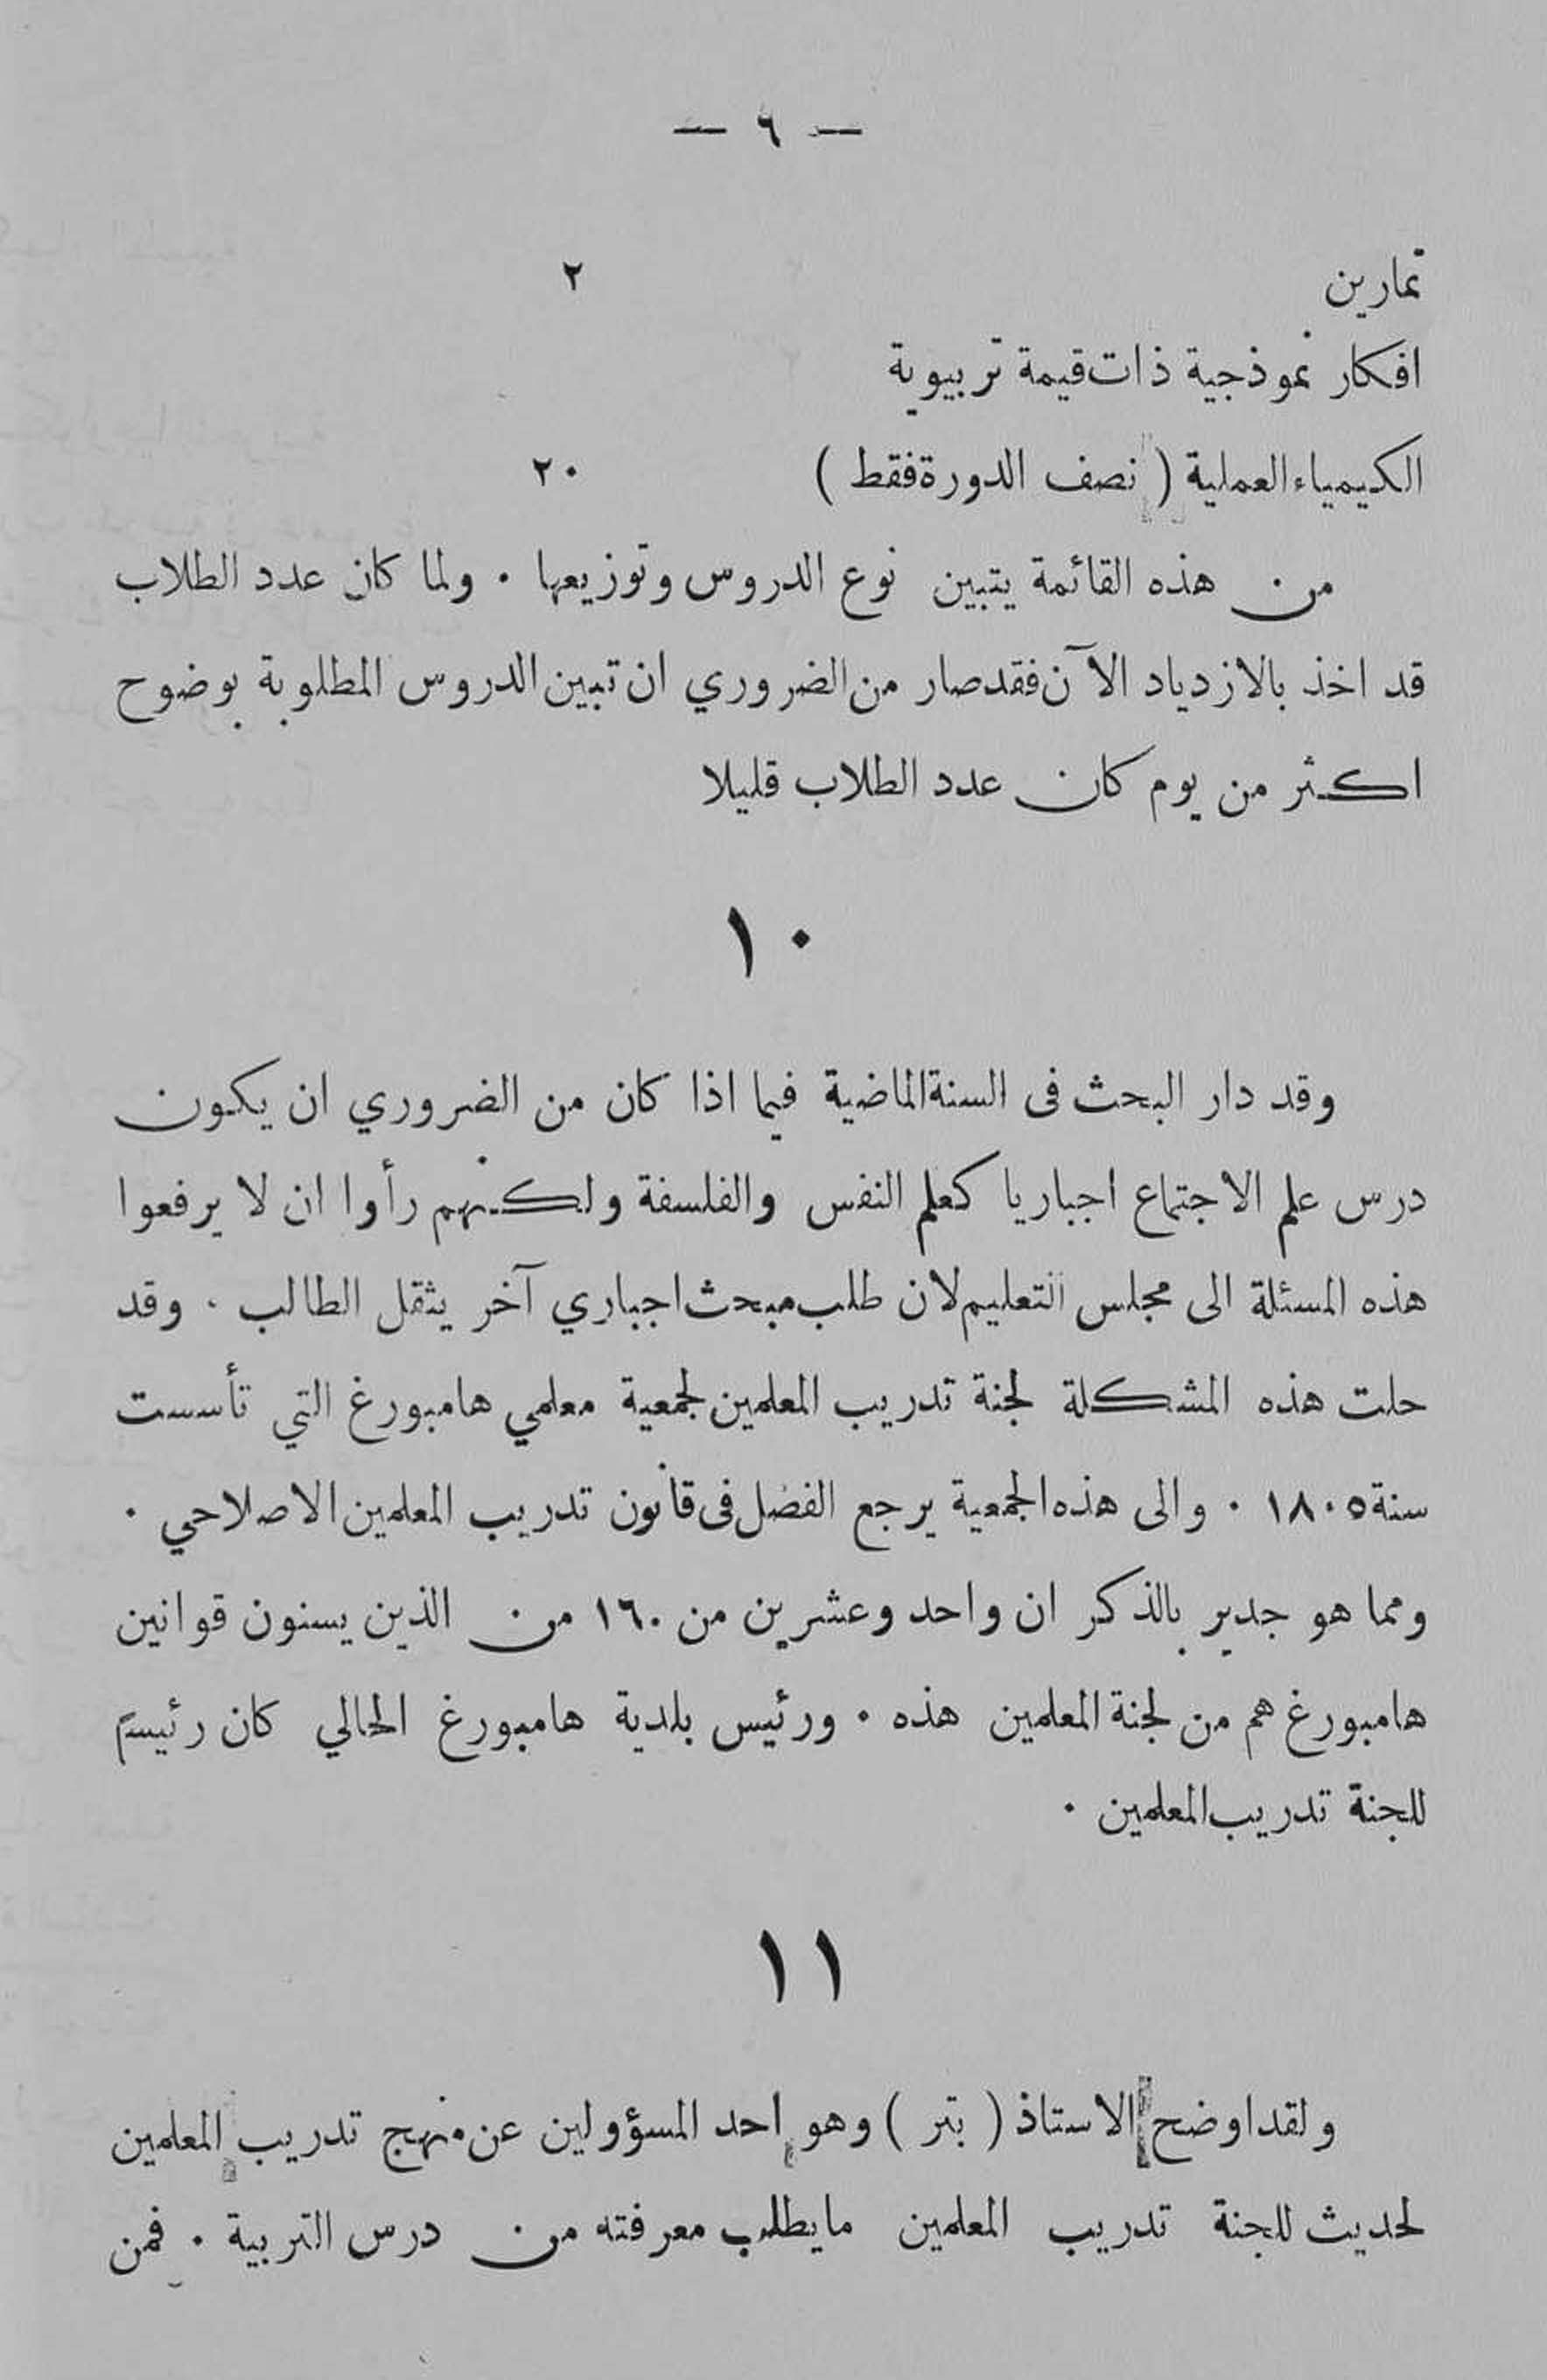 — ٦ —
تمارين ٢
افكار نموذجية ذات قيمة تربيوية
الكيمياء العملية ( نصف الدورة فقط ) ٢٠
من هذه القائمة يتبين نوع الدروس وتوزيعها . ولما كان عدد الطلاب
قد اخذ بالازدياد الآن فقد صار من الضروري ان تبين الدروس المطلوبة بوضوح
اكثر من يوم كان عدد الطلاب قليلا
١٠
وقد دار البحث فى السنة الماضية فيما اذا كان من الضروري ان يكون
درس علم الاجتماع اجباريا كعلم النفس والفلسفة ولكنهم رأوا ان لا يرفعوا
هذه المسئلة الى مجلس التعليم لان طلب مبحث اجباري آخر يثقل الطالب . وقد
حلت هذه المشكلة لجنة تدريب المعلمين لجمعية معلمي هامبورغ التي تأسست
سنة ١٨٠٥ . والى هذه الجمعية يرجع الفضل فى قانون تدريب المعلمين الاصلاحي .
ومما هو جدير بالذكر ان واحد وعشرين من ١٦٠ من الذين يسنون قوانين
هامبورغ هم من لجنة المعلمين هذه . ورئيس بلدية هامبورغ الحالي كان رئيساً
للجنة تدريب المعلمين .
١١
ولقد اوضح الاستاذ ( بتر ) وهو احد المسؤولين عن منهج تدريب المعلمين
لحديث للجنة تدريب المعلمين ما يطلب معرفته من درس التربية . فمن